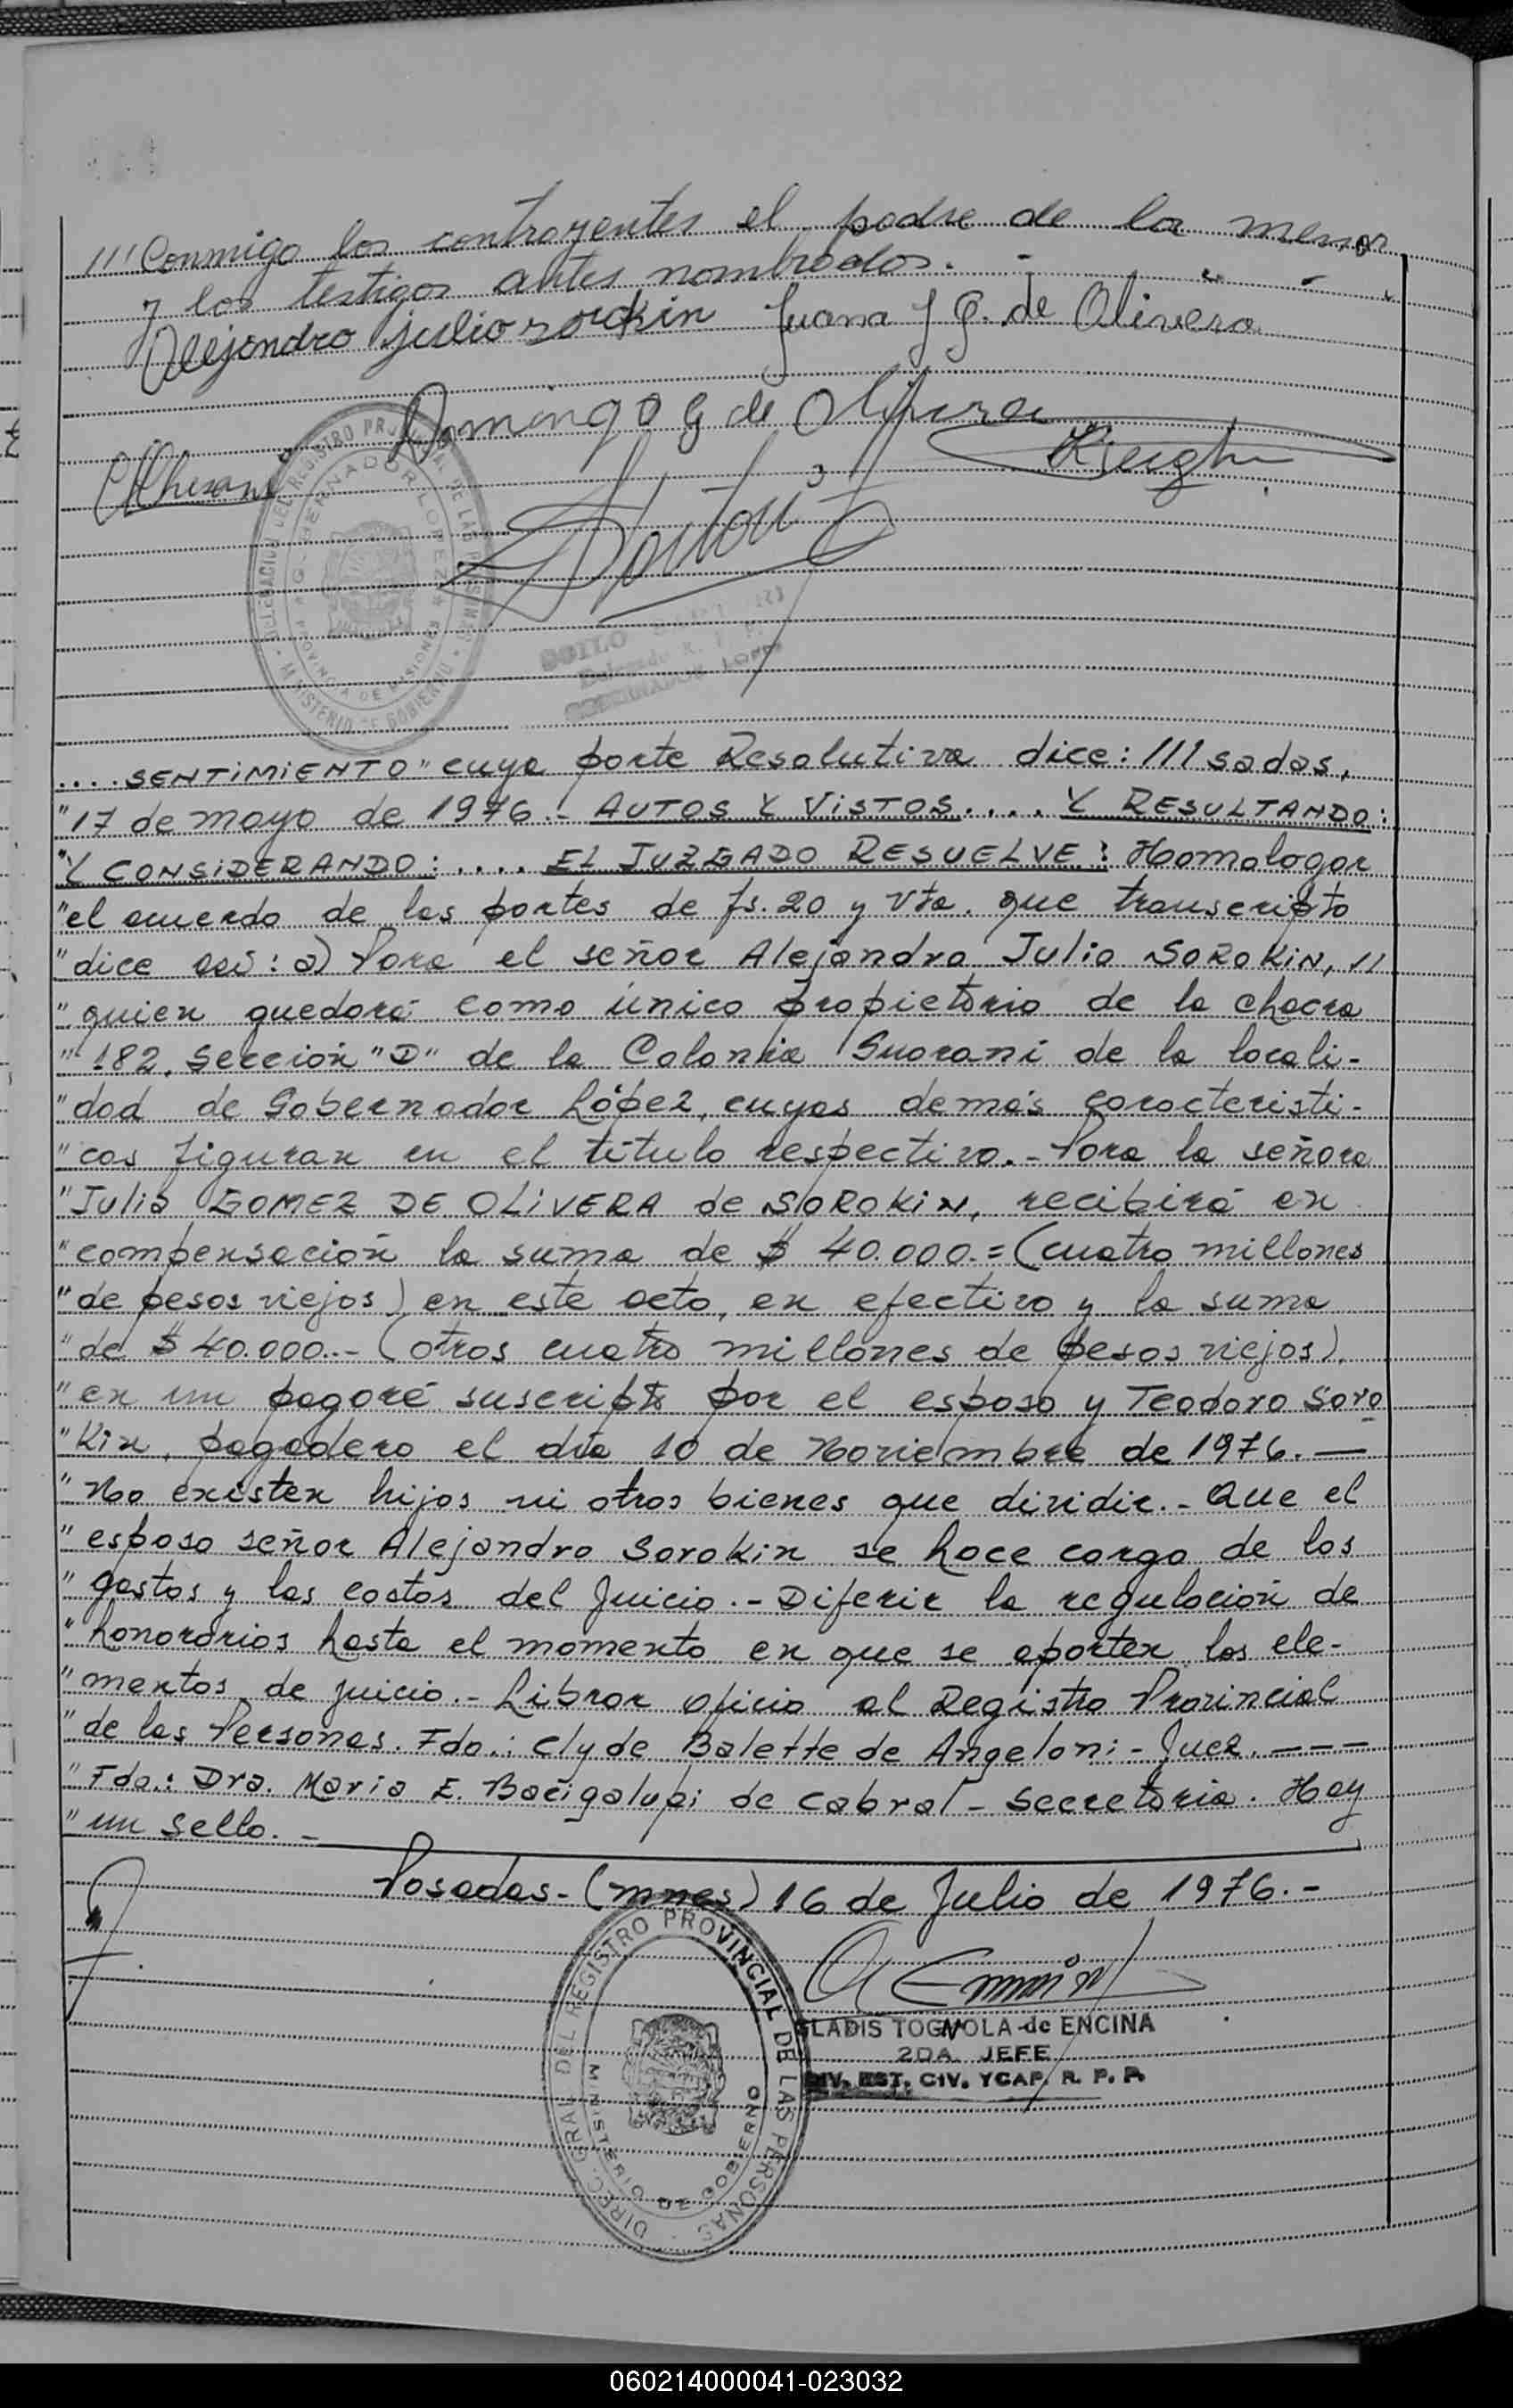 /// Conmigo los contrayentes el padre de la menor
y los testigos antes nombrados. -
Alejandro julio sorokin Juana J G. de Olivera
Domingo G de Olivera
DELEGACION DEL REGISTRO PROVINCIAL DE LAS PERSONAS
G. BERNADOR LOPEZ
PROVINCIA DE MISIONES
MINISTERIO DE GOBIERNO
GOBERNADOR LOPEZ
.... SENTIMIENTO" cuya parte Resolutiva dice: /// sadas,
"17 de mayo de 1976.- AUTOS Y VISTOS.... Y RESULTANDO:
"Y CONSIDERANDO:.... EL JUZGADO RESUELVE: Homologar
"el acuerdo de las partes de fs. 20 y vta. que transcripto
"dice así: a) Para el señor Alejandro Julio SOROKIN, //
"quien quedará como único propietario de la chacra
"182, Sección "D" de la Colonia Guaraní de la locali-
"dad de Gobernador López, cuyas demás característi-
"cas figuran en el título respectivo.- Para la señora
"Julia GOMEZ DE OLIVERA de SOROKIN, recibirá en
"compensación la suma de $ 40.000.= (cuatro millones
"de pesos viejos) en este acto, en efectivo y la suma
"de $ 40.000.- (otros cuatro millones de pesos viejos),
"en un pagaré suscripto por el esposo y Teodoro Soro
"Kin, pagadero el día 10 de Noviembre de 1976. —
"No existen hijos ni otros bienes que dividir.- Que el
"esposo señor Alejandro Sorokin se hace cargo de los
"gastos y las costas del Juicio.- Diferir la regulación de
"honorarios hasta el momento en que se aporten los ele-
"mentos de juicio.- Librar oficio al Registro Provincial
"de las Personas. Fdo.: Clyde Balette de Angeloni - Juez. ---
"Fdo.: Dra. Maria E. Bacigalupi de Cabral - Secretaria. Hay
"un sello. -
Posadas - (mnes) 16 de Julio de 1976.-
DIREC. GRAL. DEL REGISTRO PROVINCIAL DE LAS PERSONAS
MINISTERIO DE GOBIERNO
GLADIS TOGNOLA de ENCINA
2DA. JEFE
DIV. EST. CIV. YCAP. R. P. P.
060214000041-023032